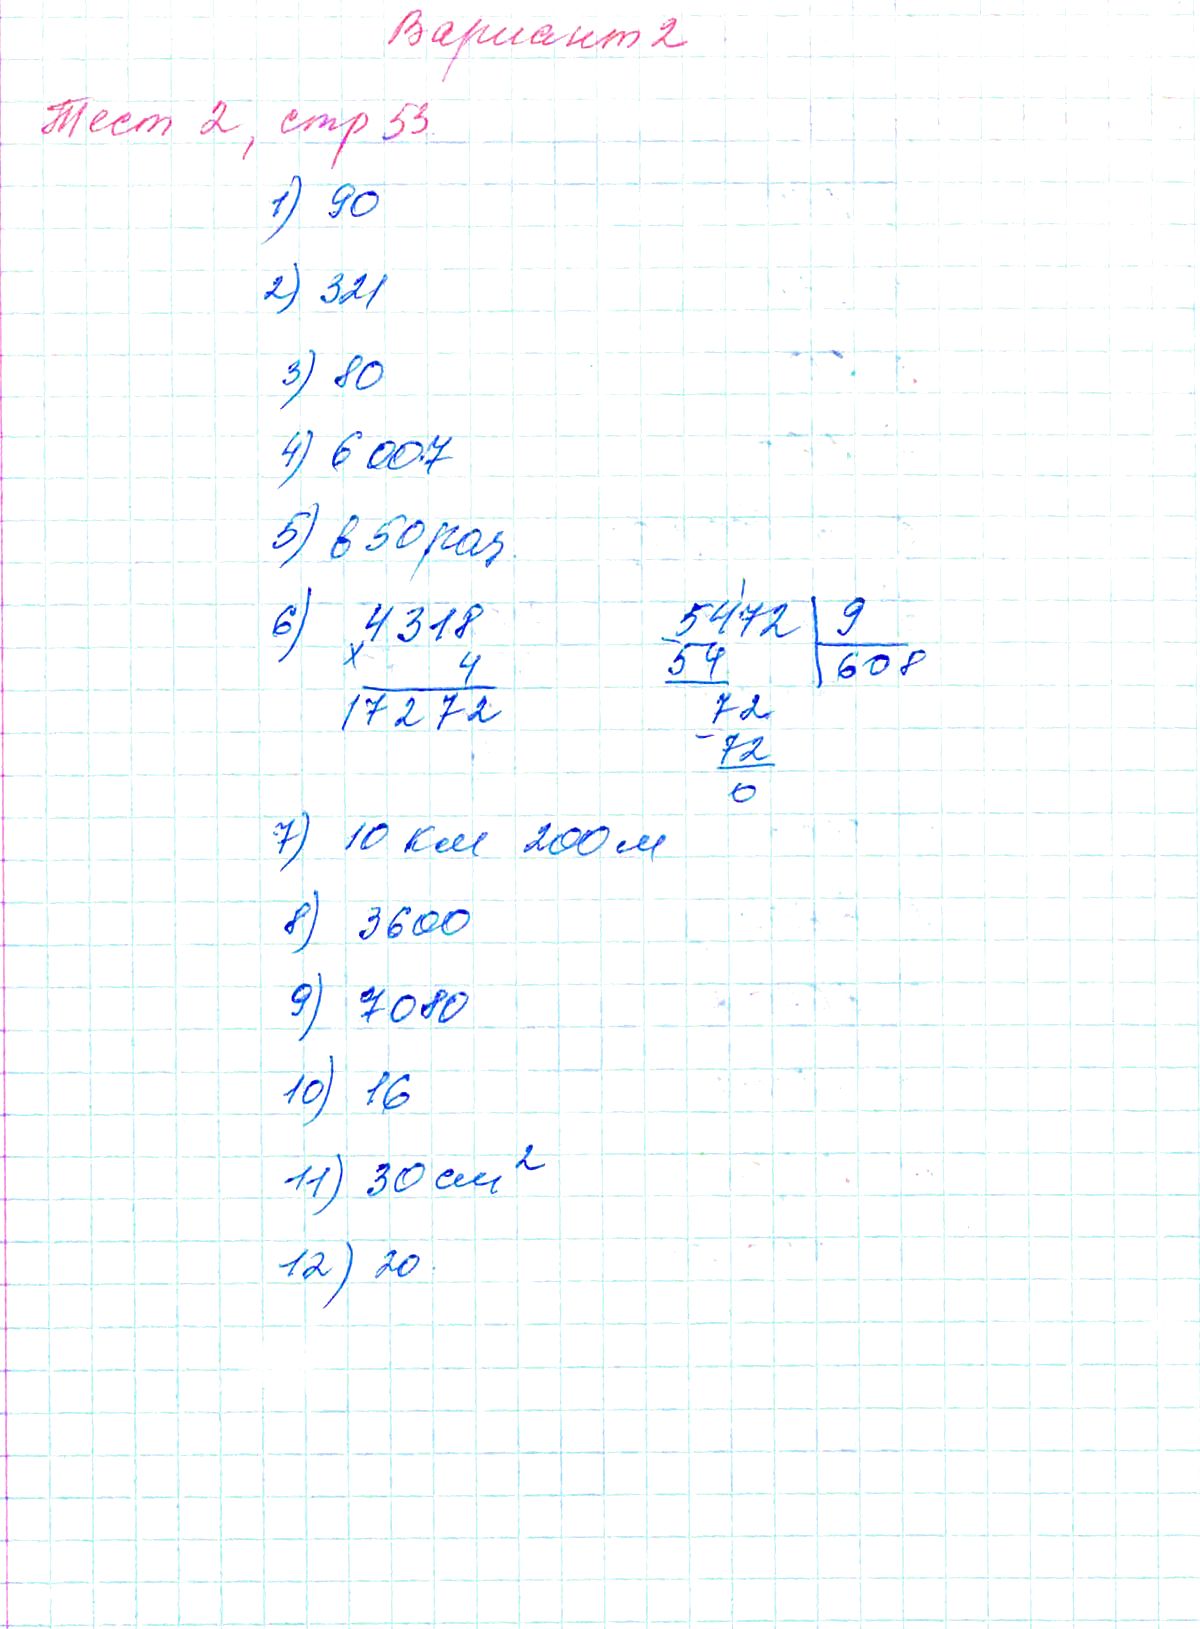 Вариант 2
Тест 2, стр 53
1) 90
2) 321
3) 80
4) 6007
5) в 50 раз.
6) 4318 5472 | 9
х 4 - 54 608
17272 72
- 72
0
7) 10 км 200 м
8) 3600
9) 7080
10) 16
11) 30 см²
12) 20.